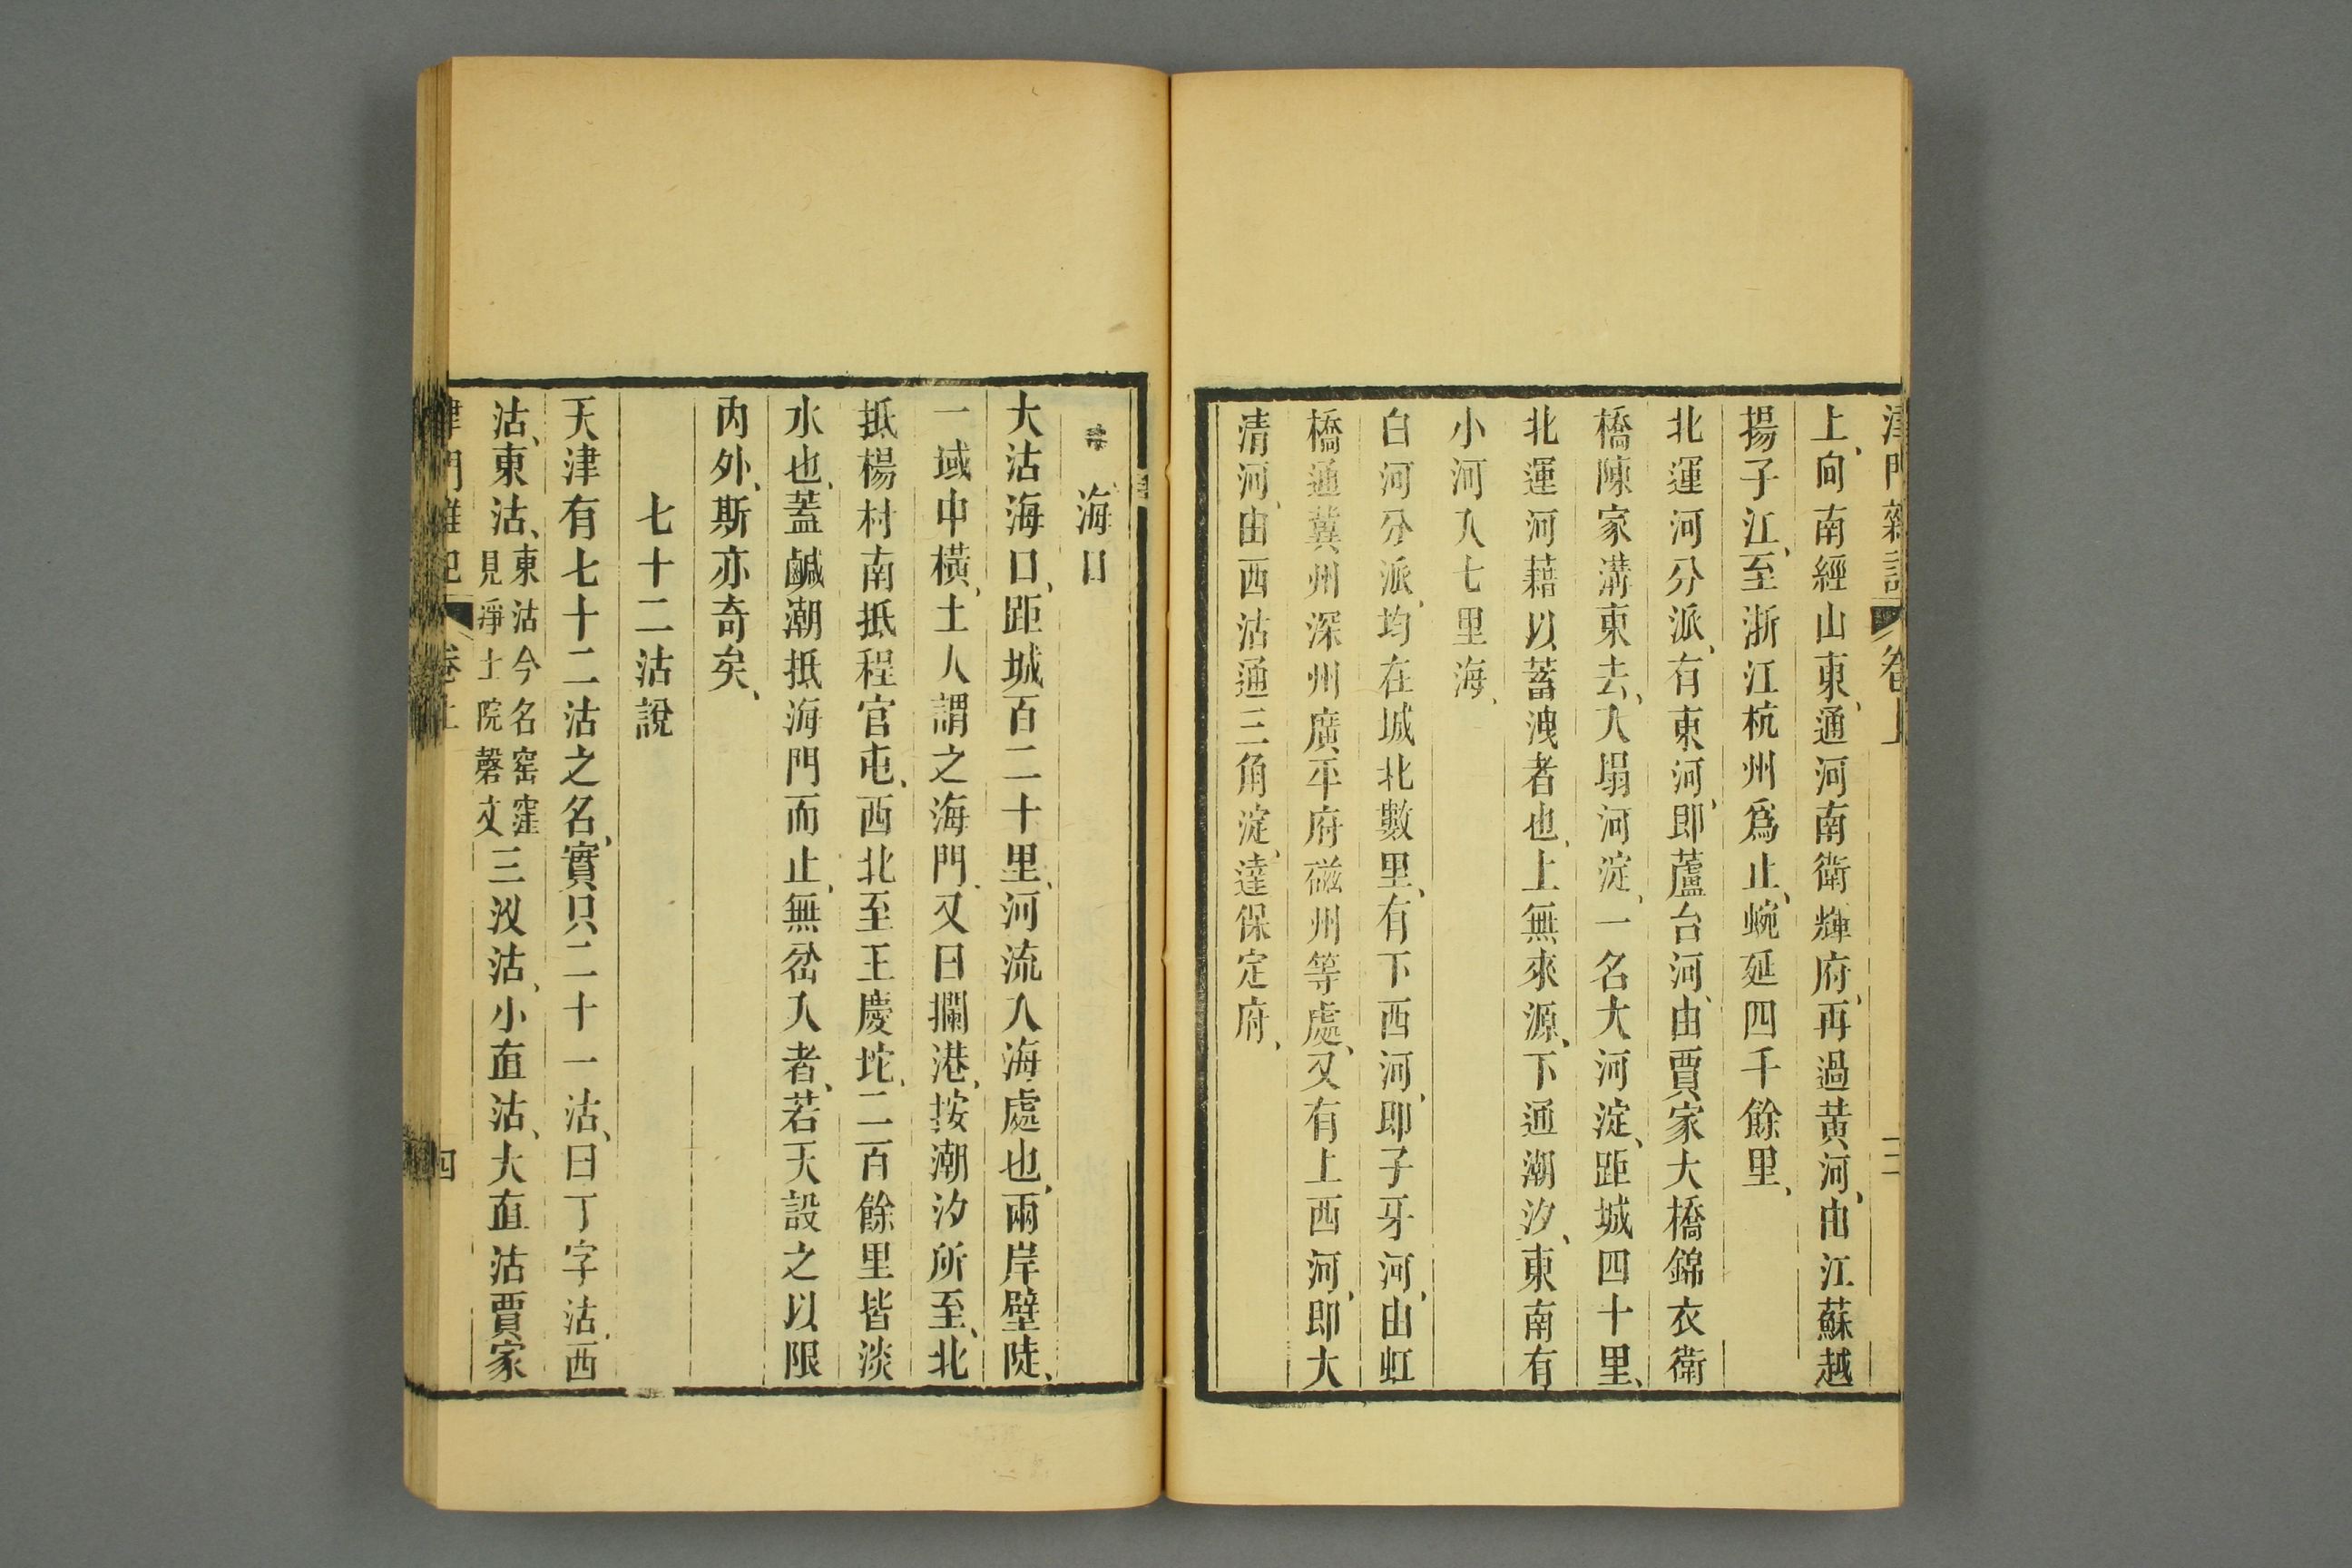 津門雜記 卷上 三
上、向南經山東、通河南衛輝府、再過黃河、由江蘇越
揚子江、至浙江杭州爲止、蜿延四千餘里、
北運河分派、有東河、即蘆台河、由賈家大橋錦衣衛
橋陳家溝東去、入塌河淀、一名大河淀、距城四十里、
北運河藉以蓄洩者也、上無來源、下通潮汐、東南有
小河入七里海、
白河分派、均在城北數里、有下西河、即子牙河、由虹
橋通冀州深州廣平府磁州等處、又有上西河、即大
清河、由西沽通三角淀、達保定府、
海口
大沽海口、距城百二十里、河流入海處也、兩岸壁陡、
一域中橫、土人謂之海門、又曰攔港、按潮汐所至、北
抵楊村南抵程官屯、西北至王慶坨、二百餘里皆淡
水也、蓋鹹潮抵海門而止、無沿入者、若天設之以限
內外、斯亦奇矣、
七十二沽說
天津有七十二沽之名、實只二十一沽、曰丁字沽、西
沽、東沽、東沽今名窑窪見淨土院磬文三汊沽、小直沽、大直沽賈家
津門雜記 卷上 四